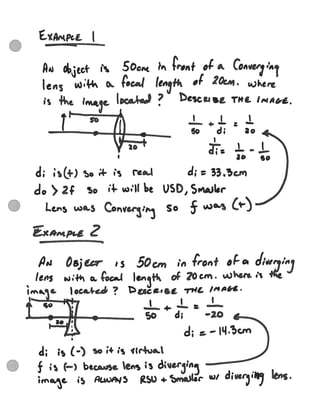 EXAMPLE 1
AN object is 50cm in front of a Converging
lens with a focal length of 20cm. where
is the image located? DESCRIBE THE IMAGE.
50
20
1/50 + 1/di = 1/20
1/di = 1/20 - 1/50
di is (+) so it is real di = 33.3cm
do > 2f so it will be USD, Smaller
Lens was Converging so f was (+)
EXAMPLE 2
AN OBJECT IS 50cm in front of a diverging
lens with a focal length of 20cm. where is the
image located? DESCRIBE THE IMAGE.
50
20
1/50 + 1/di = 1/-20
di = -14.3cm
di is (-) so it is virtual
f is (-) because lens is diverging
image is ALWAYS RSU + Smaller w/ diverging lens.